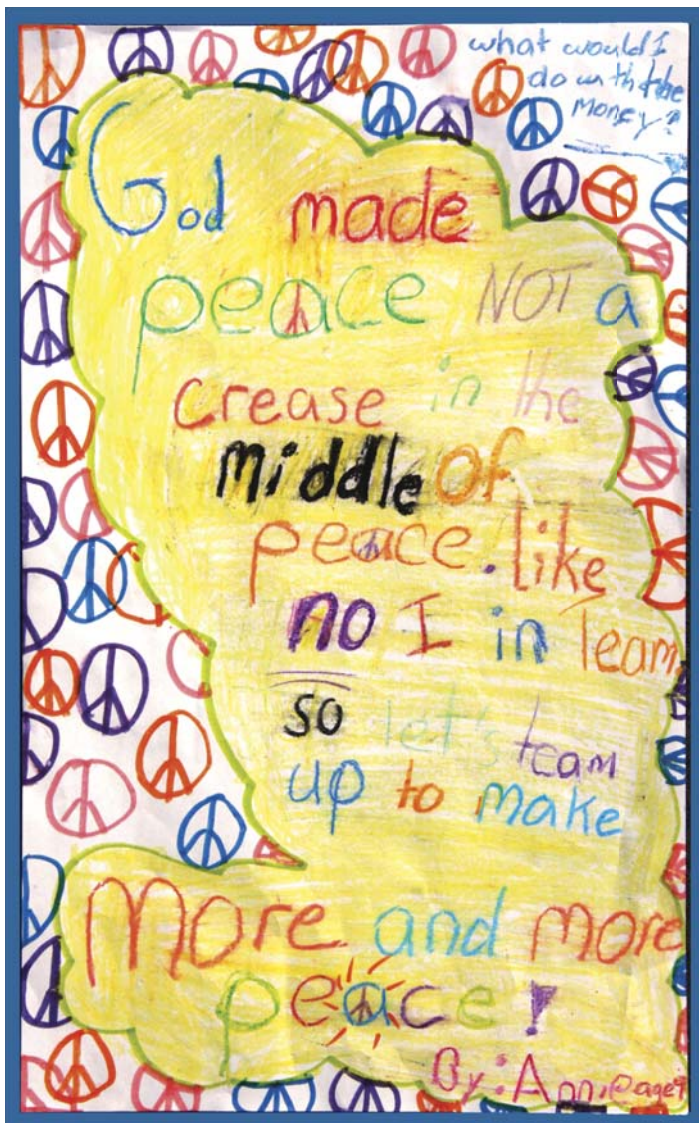 what would I
do with the
money?
God made
peace NOT a
crease in the
middle of
peace. like
no I in Team
so let's team
up to make
More and more
peace!
By: Annie age 9